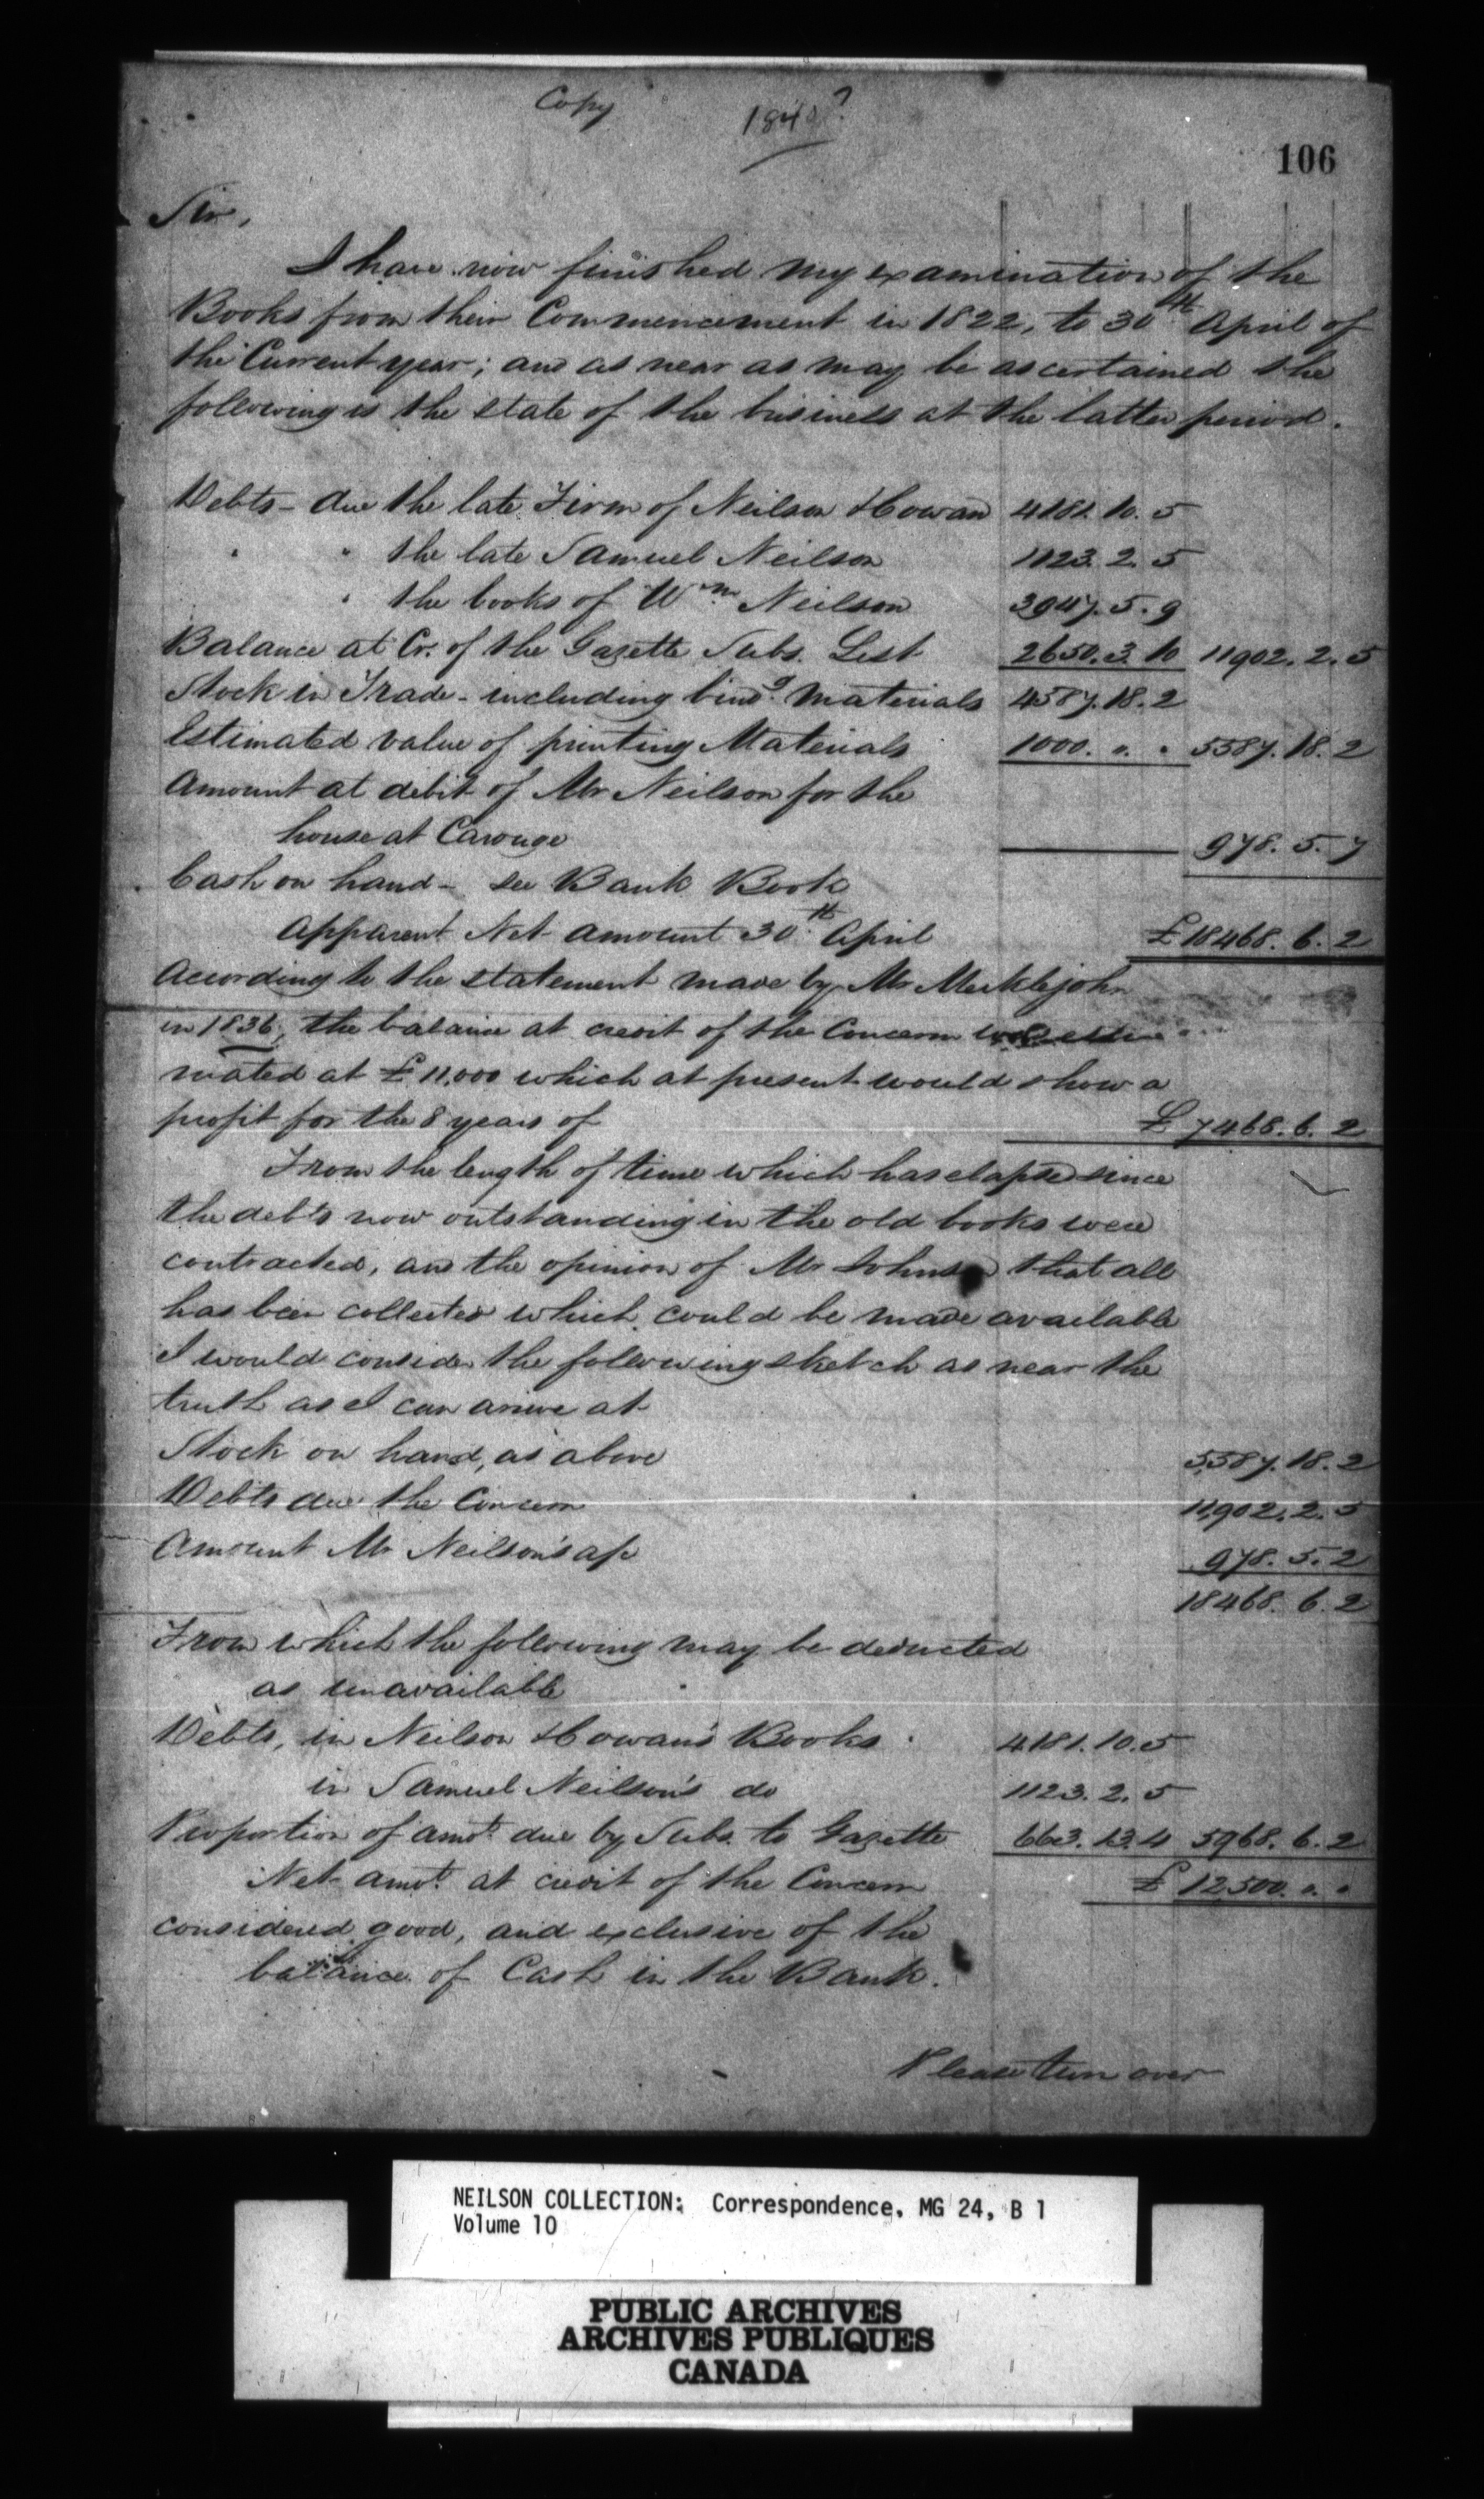 Copy
1840?
106
Sir,
I have now finished my examination of the
Books from their Commencement in 1822, to 30th April of
the Current year; and as near as may be ascertained the
following is the state of the business at the latter period.
Debts - due the late Firm of Neilson & Cowan 4181. 10. 5
" " the late Samuel Neilson 1123. 2. 5
" the books of Wm Neilson 3947. 5. 9
Balance at Cr. of the Gazette Subs. List 2650. 3. 10 11902. 2. 5
Stock in Trade - including bindg. Materials 4587. 18. 2
Estimated value of printing Materials 1000. " . " 5587. 18. 2
Amount at debit of Mr Neilson for the
house at Carouge 978. 5. 7
Cash on hand - see Bank Book
Apparent Net amount 30th April £18468. 6. 2
According to the statement made by Mr Meiklejohn
in 1836, the balance at credit of the Concern was esti
mated at £11,000 which at present would show a
profit for the 8 years of £7468. 6. 2
From the length of time which has elapsed since
the debts now outstanding in the old books were
contracted, and the opinion of Mr Johnson that all
has been collected which could be made available
I would consider the following sketch as near the
truth as I can arrive at
Stock on hand, as above 5,587. 18. 2
Debts due the Concern 11,902. 2. 5
Amount Mr Neilson's a/c 978. 5. 2
18468. 6. 2
From which the following may be deducted
as unavailable
Debts, in Neilson & Cowan's Books 4181. 10. 5
in Samuel Neilson's do 1123. 2. 5
Proportion of amot. due by Subs. to Gazette 663. 13. 4 5968. 6. 2
Net amot. at credit of the Concern £12,500. " . "
considered good, and exclusive of the
balance of Cash in the Bank.
Please turn over
NEILSON COLLECTION: Correspondence, MG 24, B 1
Volume 10
PUBLIC ARCHIVES
ARCHIVES PUBLIQUES
CANADA